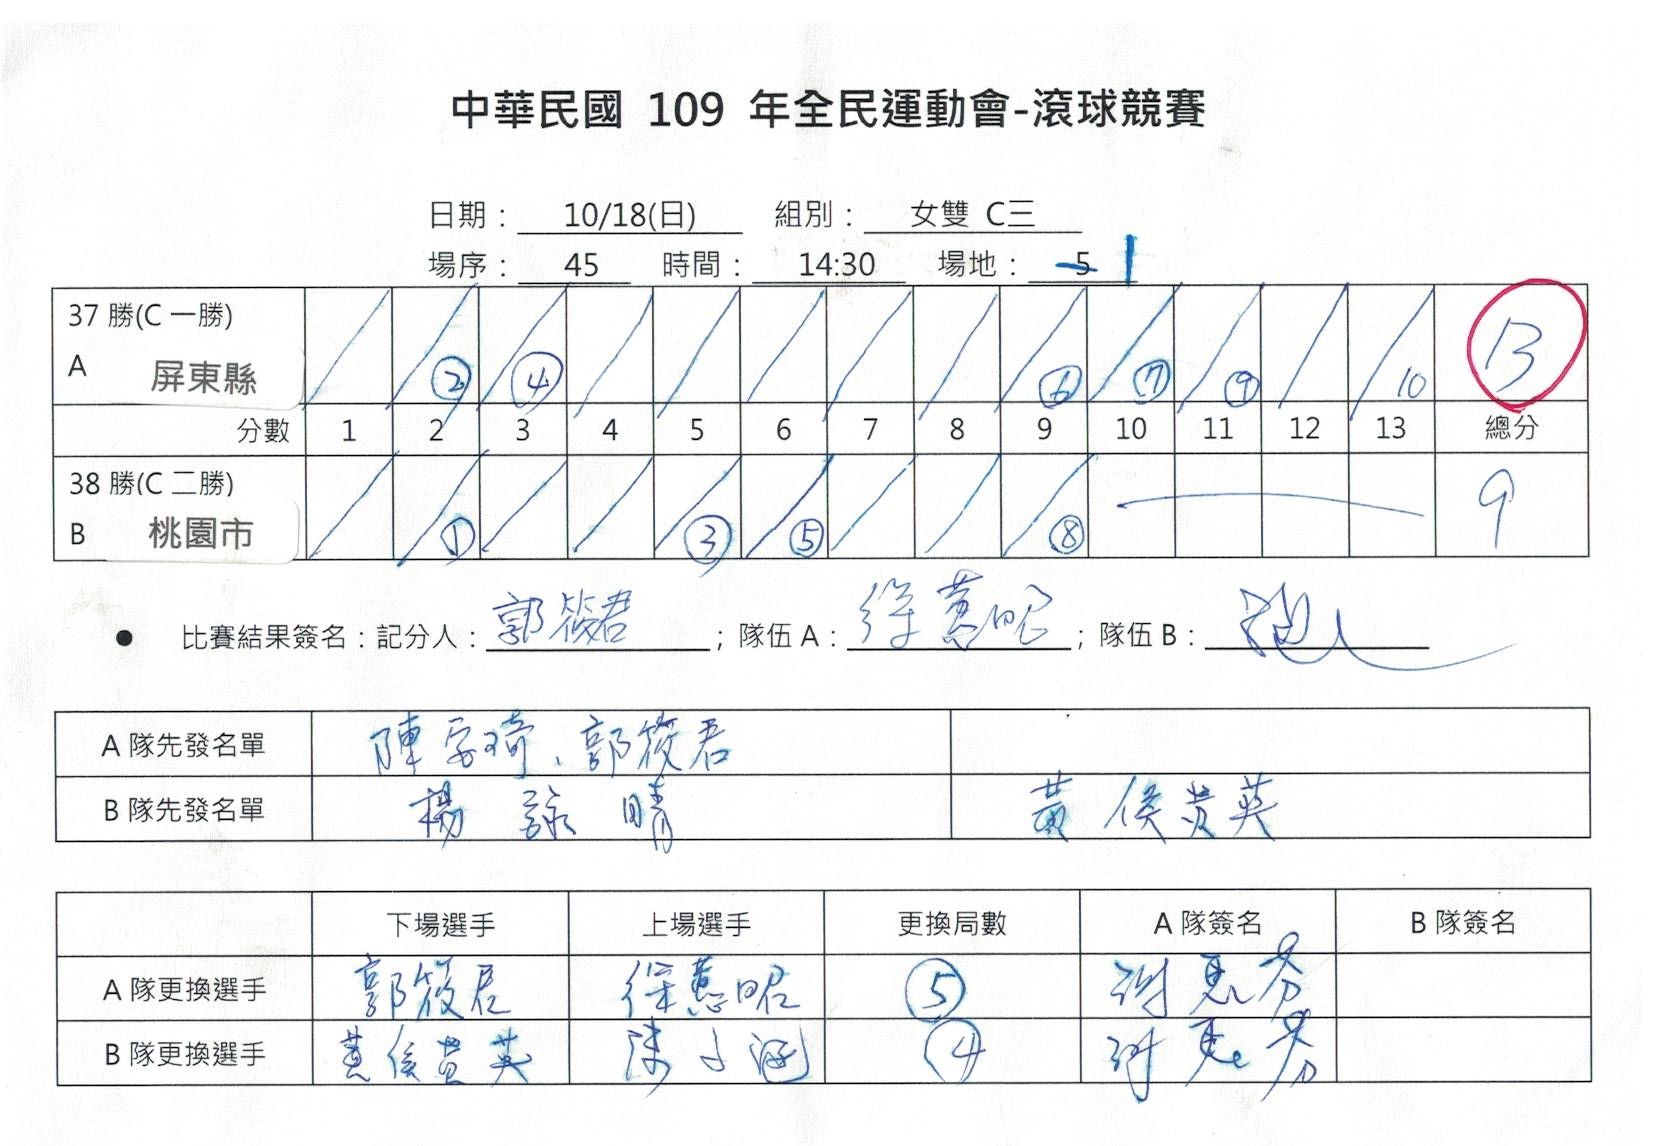 中華民國 109 年全民運動會-滾球競賽
日期： 10/18(日) 組別： 女雙 C三
場序： 45 時間： 14:30 場地： 5 1
37 勝(C 一勝)
A 屏東縣 ② ④ ⑥ ⑦ ⑨ 10 13
分數 1 2 3 4 5 6 7 8 9 10 11 12 13 總分
38 勝(C 二勝)
B 桃園市 ① ③ ⑤ ⑧ 9
● 比賽結果簽名：記分人：郭筱君；隊伍 A：徐蕙昭；隊伍 B：
A 隊先發名單 陳 琦、郭筱君
B 隊先發名單 楊詠晴 黃侯 英
下場選手 上場選手 更換局數 A 隊簽名 B 隊簽名
A 隊更換選手 郭筱君 徐蕙昭 ⑤ 謝惠芬
B 隊更換選手 黃侯 英 陳 涵 ④ 謝惠芬